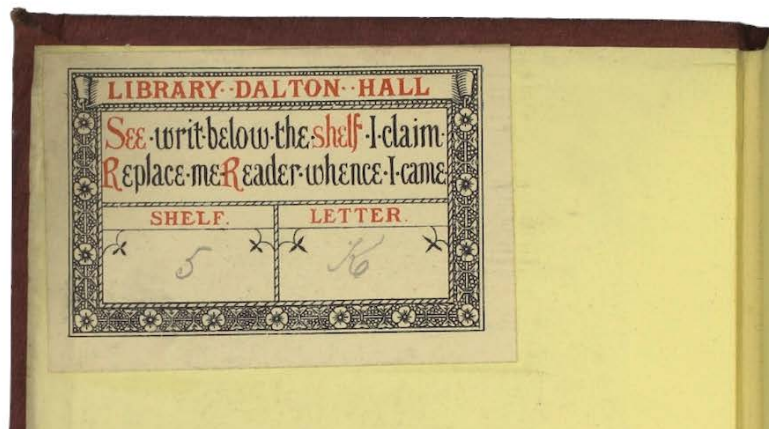 LIBRARY··DALTON··HALL
See·writ·below·the·shelf·I·claim·
Replace·me·Reader·whence·I·came
SHELF. LETTER.
5 K